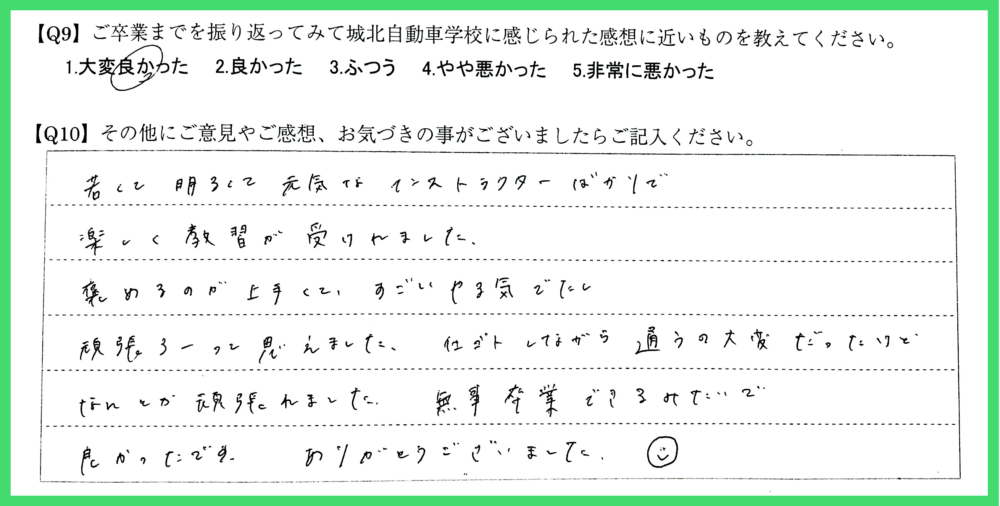 【Q9】ご卒業までを振り返ってみて城北自動車学校に感じられた感想に近いものを教えてください。
1.大変良かった 2.良かった 3.ふつう 4.やや悪かった 5.非常に悪かった
【Q10】その他にご意見やご感想、お気づきの事がございましたらご記入ください。
若くて 明るくて 元気な インストラクターばかりで
楽しく 教習が 受けれました。
褒めるのが 上手くて、すごい やる気でたし
頑張ろーって 思えました。 仕ゴトしながら 通うの大変だったけど
なんとか 頑張れました。 無事 卒業 できるみたいで
良かったです。 ありがとうございました。